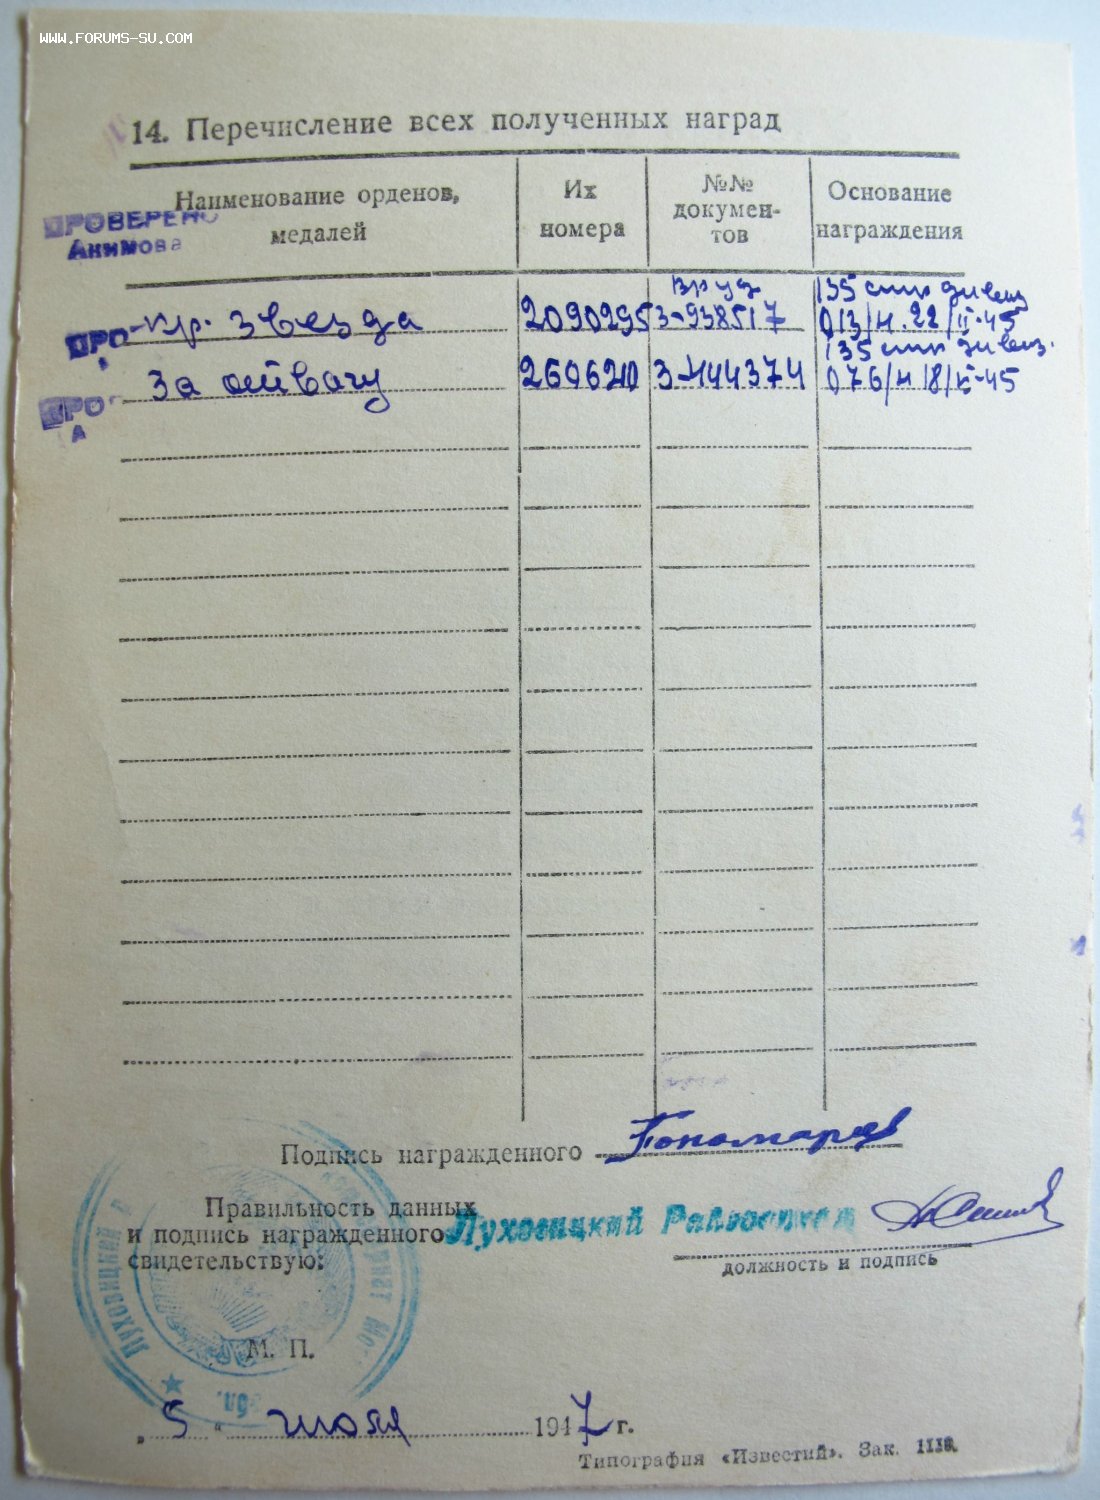 WWW.FORUMS-SU.COM
14. Перечисление всех полученных наград
Наименование орденов, медалей
Их номера
№№ докумен-тов
Основание награждения
ПРОВЕРЕНО
Акимова
вр уд
135 стр дивиз
ПРО
кр. Звезда 2090295 З-938517 013/н. 22/II-45
135 стр дивиз.
За отвагу 260620 З-444374 076/н 18/II-45
ПРО
А
Подпись награжденного Пономарев
Правильность данных
и подпись награжденного
свидетельствую:
Луховицкий Райвоенком
должность и подпись
Луховицкий
М. П.
обл.
„ 5 “ июля 1947 г.
Типография «Известий». Зак. 1118.